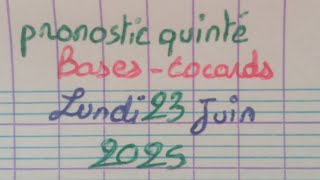 pronostic quinté
Bases-tocards
Lundi 23 Juin
2025